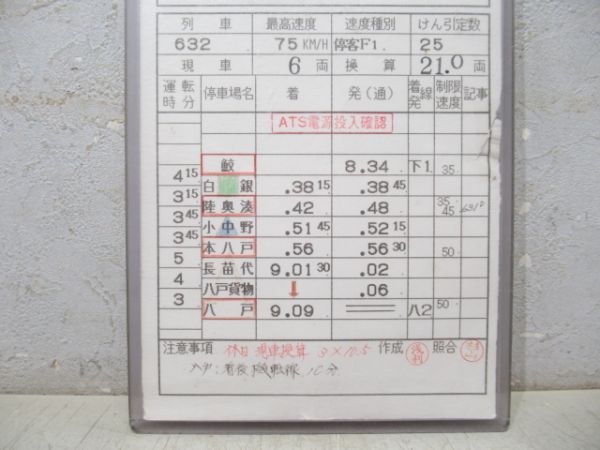 列車 最高速度 速度種別 けん引定数
632 75KM/H 停客F1. 25
現車 6両 換算 21.0両
運転時分 停車場名 着 発（通） 着線発 制限速度 記事
ATS電源投入確認
鮫 8.34 下1 35
4 15
白銀 .38 15 .38 45
3 15
陸奥湊 .42 .48 35 45
3 45
小中野 .51 45 .52 15
3 45
本八戸 .56 .56 30 50
5
長苗代 9.01 30 .02
4
八戸貨物 ↓ .06
3
八戸 9.09 八2 50
注意事項 休日 現車換算 3×10.5 作成 照合